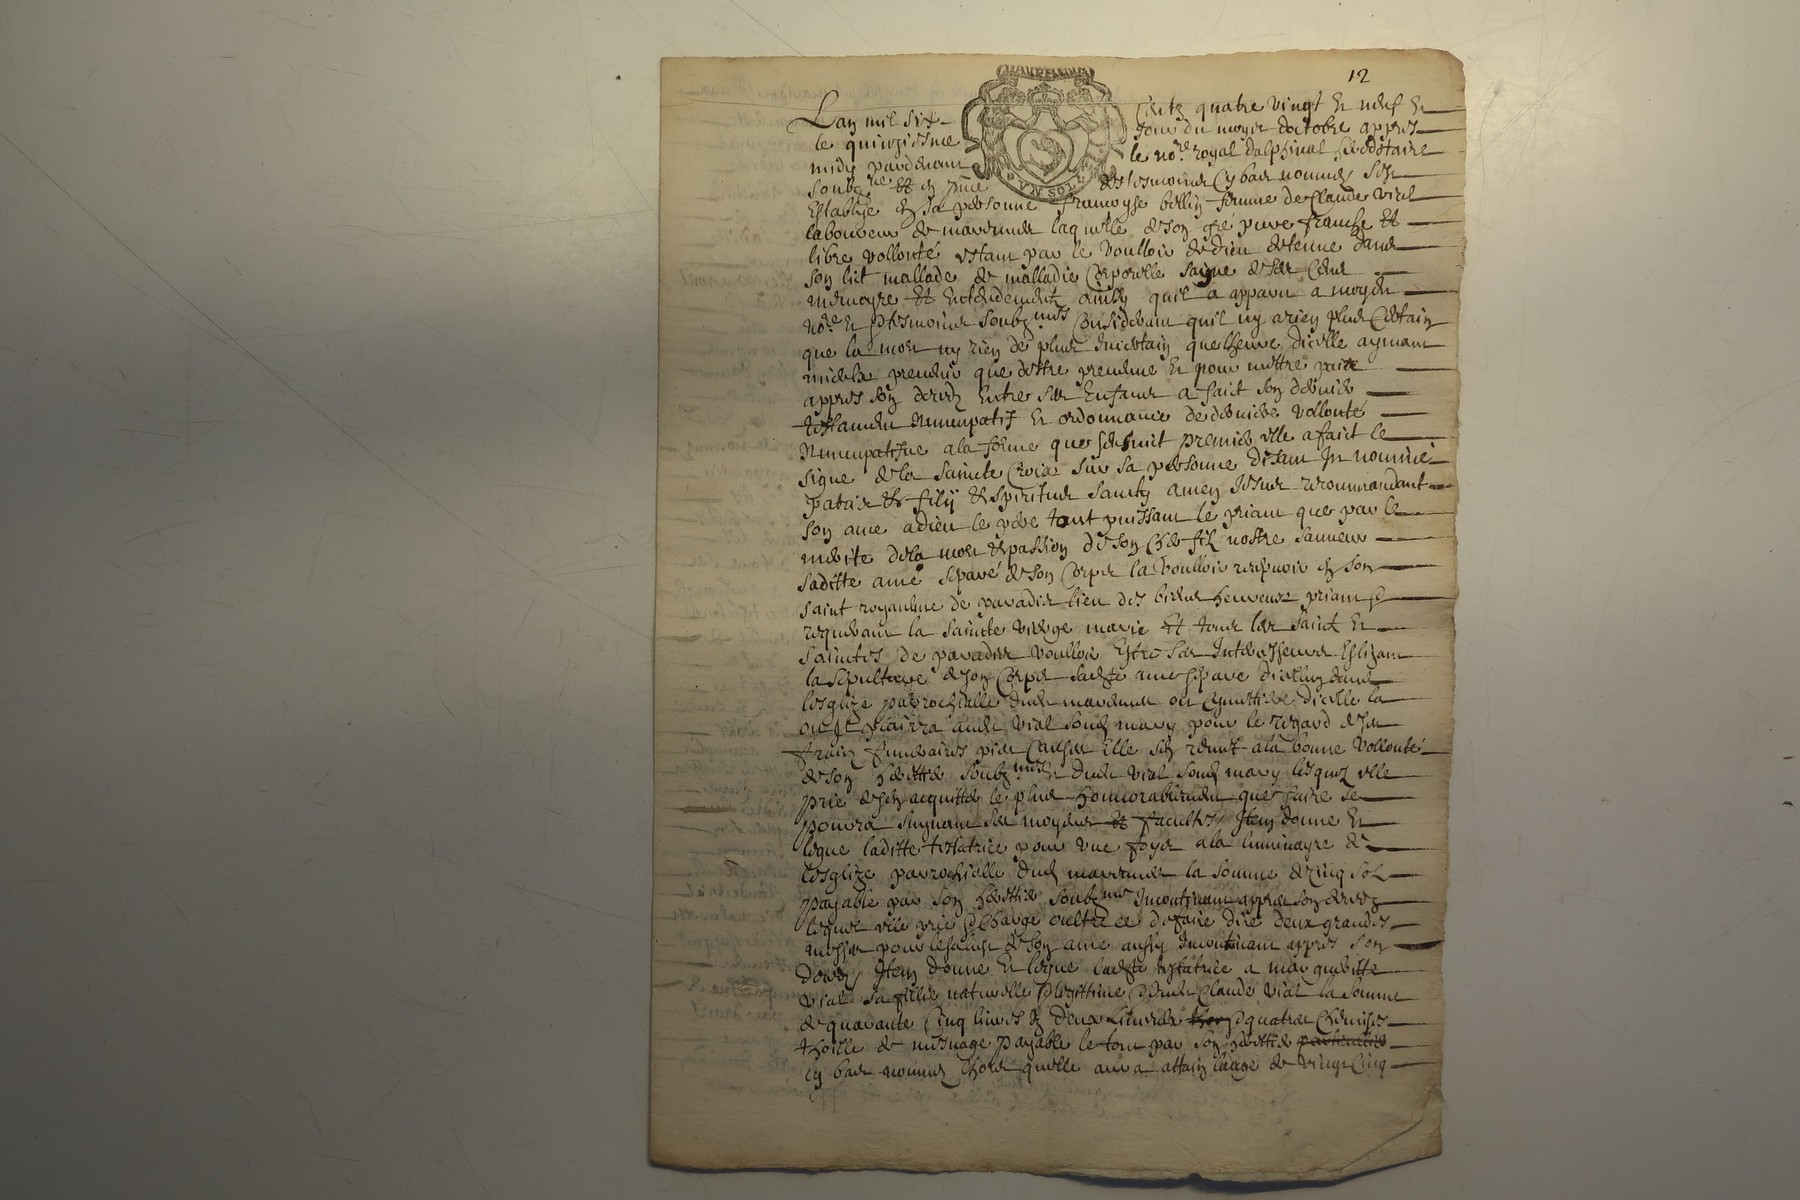 12
DAUPHINE
Lan mil six centz quatre vingt et neuf et
le quinziesme jour du moys doctobre appres
midy pardevant le no.re royal dalphinal hereditaire
soubz.ne et en p̄nce des tesmoins cy bas nommes s'est
UN SOL
establye en sa personne francoyse bellin femme de Claude vial
laboureur de laquelle de son gré pure franche et
libre vollonté estant par le voulloir de dieu detenue dans
son lict mallade de malladie corporelle saine de ses sens
memoyre et entendement ainsy quil a apparu a moydit
no.re et tesmoins soubz.nés considerant quil ny a rien plus certain
que la mort ny rien de plus incertain que lheure dicelle aymant
mieulx prevenir que destre prevenue et pour mettre paix
appres son deces entre ses enfans a faict son dernier
testament nuncupatif et ordonnance de derniere vollonté
nuncupatifve a la forme que sensuit premier elle a faict le
signe de la sainte croix sur sa personne disant In nomine
patris et filij et spiritus sancty amen Jesus recommandant
son ame a dieu le pere tout puissant le priant que par le
merite de la mort et passion de son cher filz nostre sauveur
saditte ame séparé de son corps la voulloir recepvoir en son
saint royaulme de paradis lieu des biens heureux priant et
requerant la sainte vierge marie et tous les saintz et
saintes de paradis voulloir estre ses intercesseurs eslizant
la sépulture de son corps sadte ame séparé dicelluy dans
lesglize parrochialle dudit ou cymettiere dicelle la
ou Il plairra audit vial sondit mary pour le regard de ses
fraix funeraires pies causes elle sen remet a la bonne vollonté
de son herittier soubz.né et dudit vial sondit mary lesquelz elle
prie de sen acquitter le plus honnorablement que faire se
pourra suyvant ses moyens et facultes, Item donne et
legue laditte testatrice pour une foys a la luminayre de
lesglize parrochialle dudit la somme de cinq solz
payable par son herittier soubz.né incontinant appres son deces
lequel elle prie et charge oultre ce de faire dire deux grandes
messes pour le salut de son ame aussy incontinant appres son
deces, Item donne et legue ladte testatrice a margueritte
vial sa fillie naturelle et legittime et dudit Claude vial la somme
de quarante cinq livres et deux linceulx et quatre chemises
thoille de mesnage payable le tout par son herittier particulier
cy bas nommé lhors quelle aura attain laage de vingt cinq